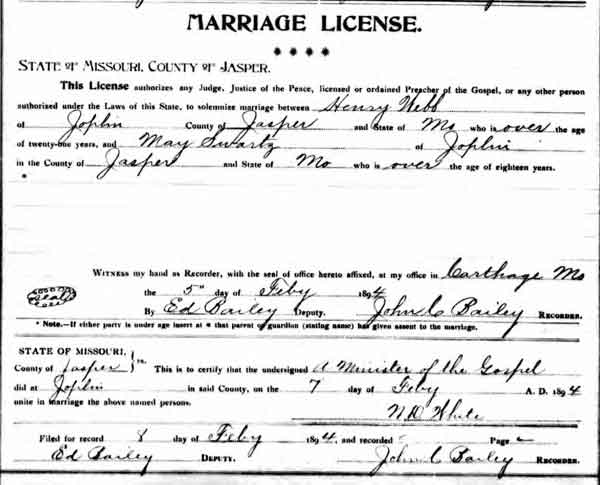 MARRIAGE LICENSE.
STATE OF MISSOURI, COUNTY OF JASPER.
This License authorizes any Judge, Justice of the Peace, licensed or ordained Preacher of the Gospel, or any other person
authorized under the Laws of this State, to solemnize marriage between Henry Webb
of Joplin County of Jasper and State of Mo who is over the age
of twenty-one years, and May Swartz of Joplin
in the County of Jasper and State of Mo who is over the age of eighteen years.
*
WITNESS my hand as Recorder, with the seal of office hereto affixed, at my office in Carthage Mo
seal
the 5" day of Feby 1894
By Ed Bailey Deputy. John C Bailey RECORDER.
* Note.—If either party is under age insert at * that parent or guardian (stating name) has given assent to the marriage.
STATE OF MISSOURI,
County of Jasper } ss. This is to certify that the undersigned A Minister of the Gospel
did at Joplin in said County, on the 7 day of Feby A. D. 1894
unite in marriage the above named persons.
N.D. White
Filed for record 8 day of Feby 1894, and recorded Page
Ed Bailey DEPUTY. John C Bailey RECORDER.